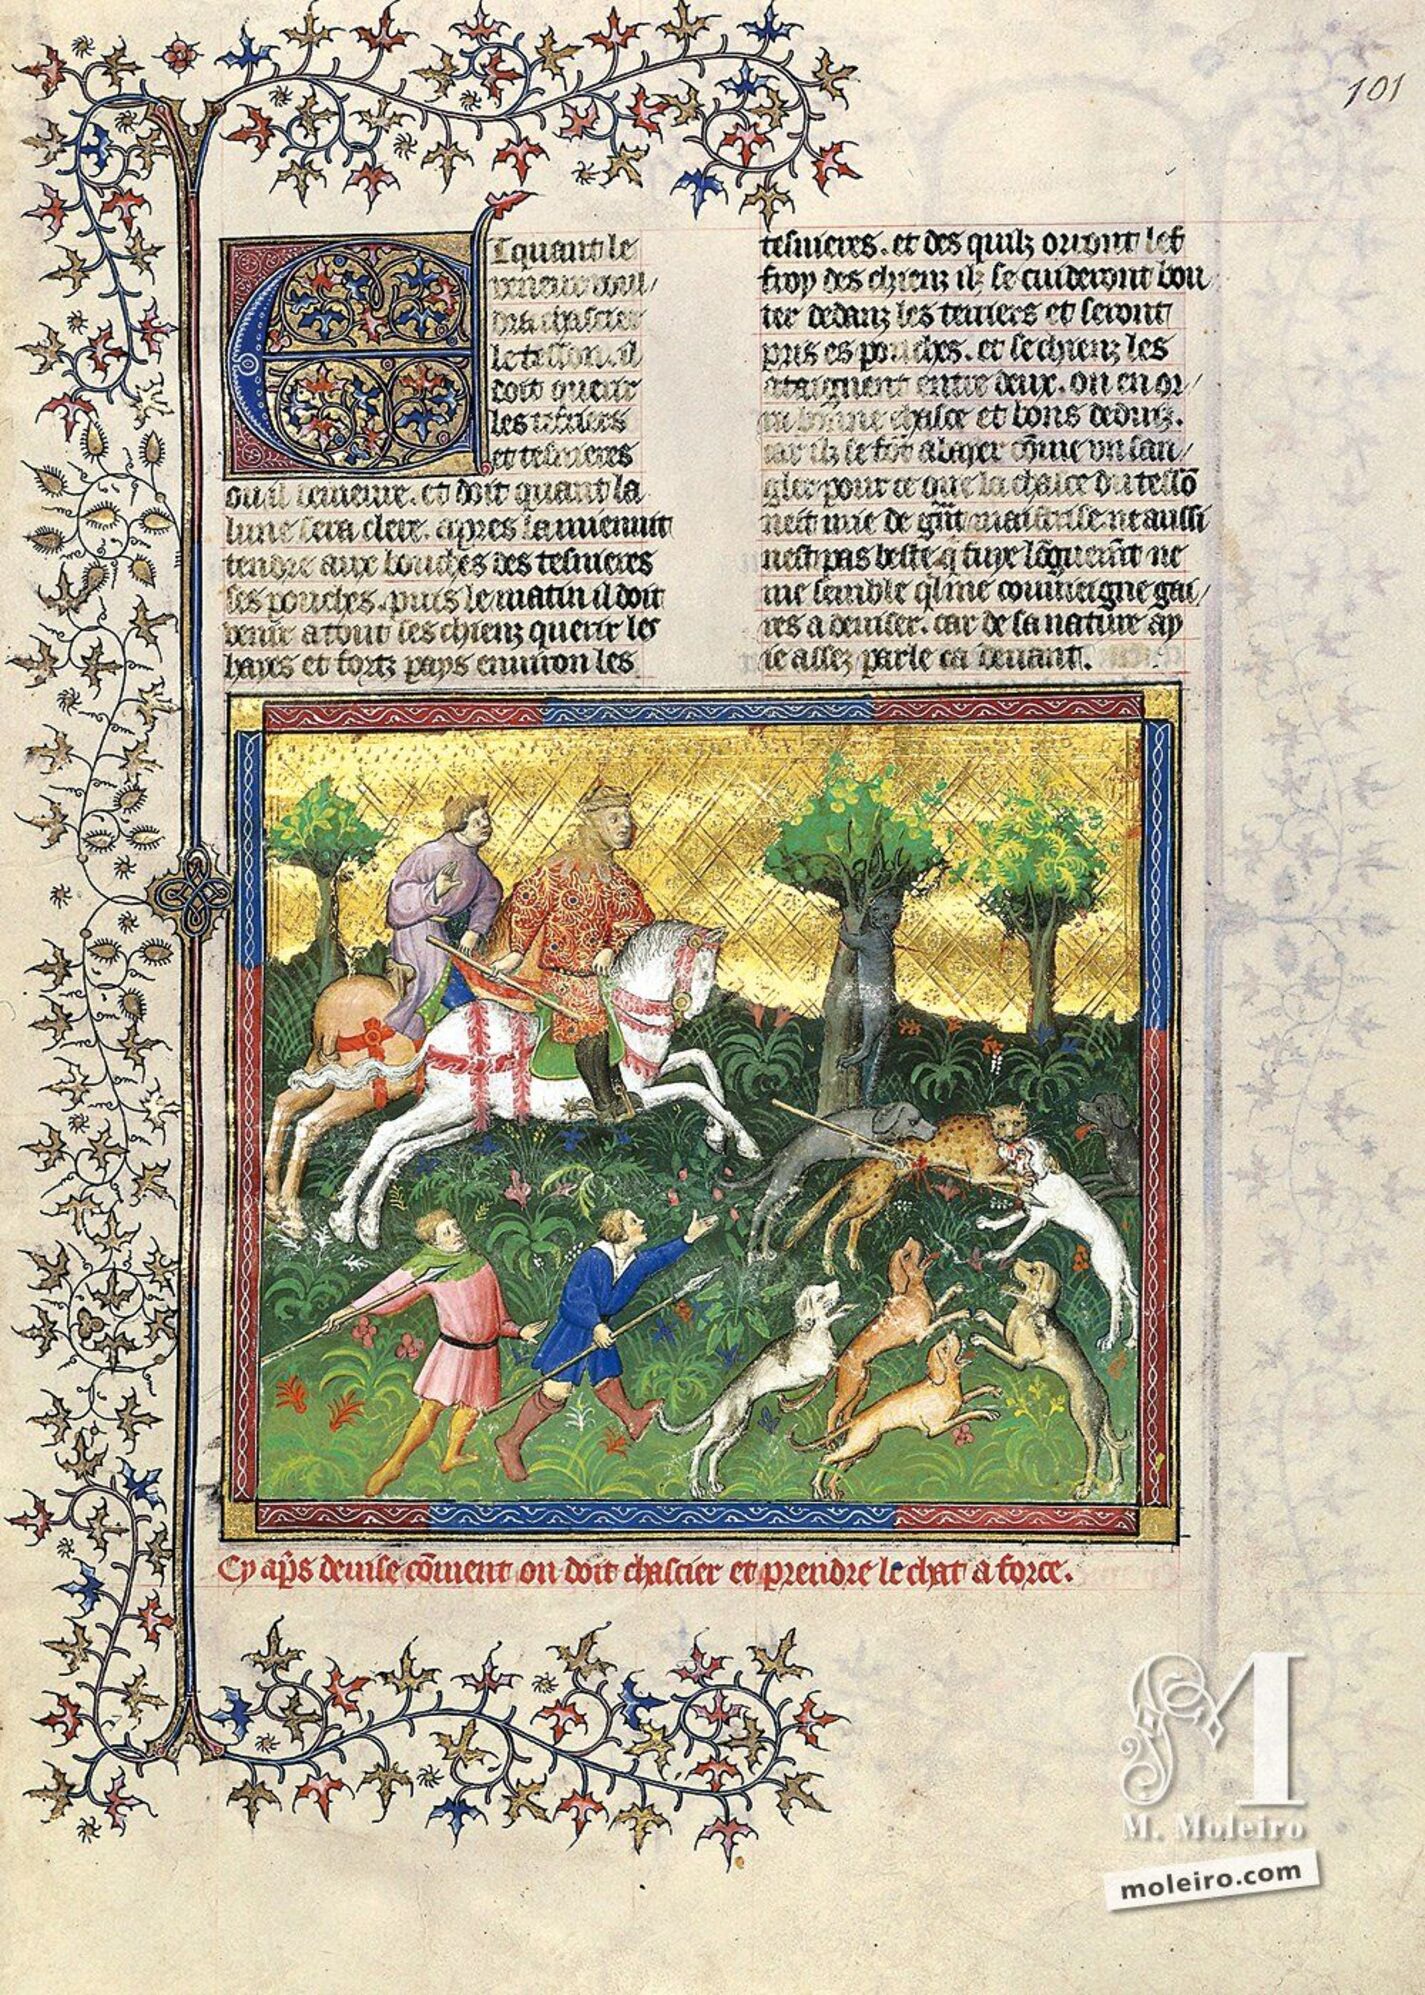 101
Et quant le
veneur voul/
dra chascier
le tesson. il
doit querir
les terriers
et tesnieres
ou il demeure. et doit quant la
lune sera clere. apres la mienuit
tendre aux bouches des tesnieres
ses pouches. puis le matin il doit
venir a tout ses chienz querir les
hayes et fortz pays enuiron les
tesnieres. et des quilz orront lef
froy des chienz ilz se cuideront bou/
ter dedanz les terriers et seront
pris es pouches. et se chienz les
ataignent entre deux. on en or/
ra bonne chasce et bons deduiz.
car ilz se font abayer cõme vn san/
gler pour ce que la chasce du tessõ
nest mie de gñt maistrise ne aussi
nest pas beste q̃ fuye lõguemt̃ ne
me semble ql me conuieigne gai/
res a deuiser. car de sa nature ay
ie assez parle ca deuant.
Cy ap̃s deuise cõment on doit chascier et prendre le chat a force.
M
M. Moleiro
moleiro.com